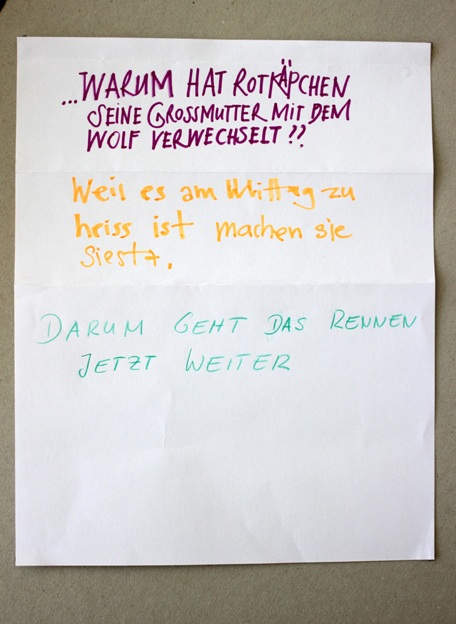 ...WARUM HAT ROTKÄPCHEN
SEINE GROSSMUTTER MIT DEM
WOLF VERWECHSELT ??
Weil es am Mittag zu
heiss ist machen sie
Siesta.
DARUM GEHT DAS RENNEN
JETZT WEITER